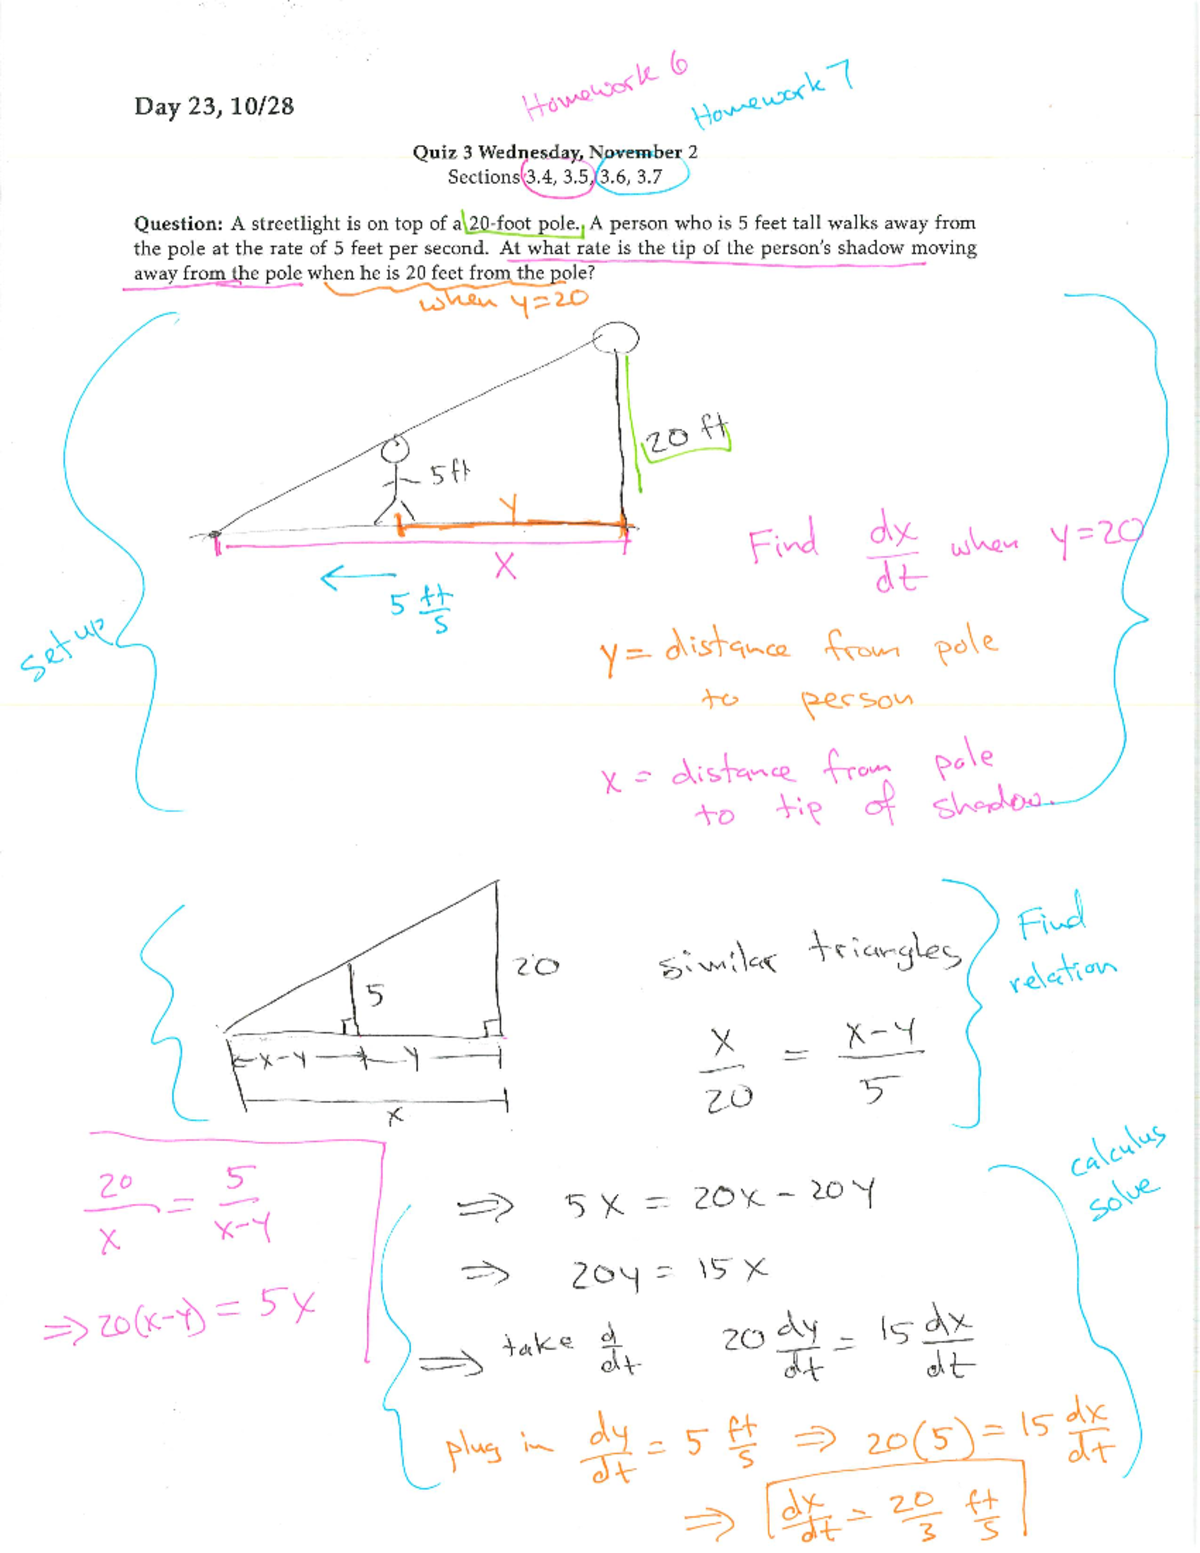 Homework 6
Homework 7
Day 23, 10/28
Quiz 3 Wednesday, November 2
Sections 3.4, 3.5, 3.6, 3.7
Question: A streetlight is on top of a 20-foot pole. A person who is 5 feet tall walks away from
the pole at the rate of 5 feet per second. At what rate is the tip of the person's shadow moving
away from the pole when he is 20 feet from the pole?
when y=20
20 ft
5 ft
y
x
5 ft/s
Find dx/dt when y=20
set up
y = distance from pole
to person
x = distance from pole
to tip of shadow.
Find
relation
20
5
similar triangles
x/20 = x-y/5
x-y y
x
calculus
solve
20/x = 5/x-y
⇒ 20(x-y) = 5x
⇒ 5x = 20x - 20y
⇒ 20y = 15x
⇒ take d/dt 20 dy/dt = 15 dx/dt
plug in dy/dt = 5 ft/s ⇒ 20(5) = 15 dx/dt
⇒ dx/dt = 20/3 ft/s